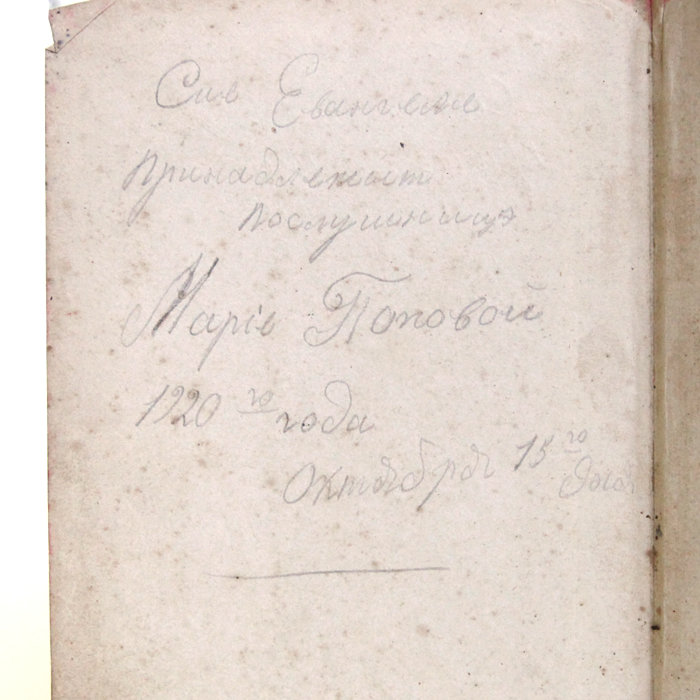 Сие Евангелие
принадлежит
послушнице
Марiе Поповой
1920 го года
Октября 15 го дня